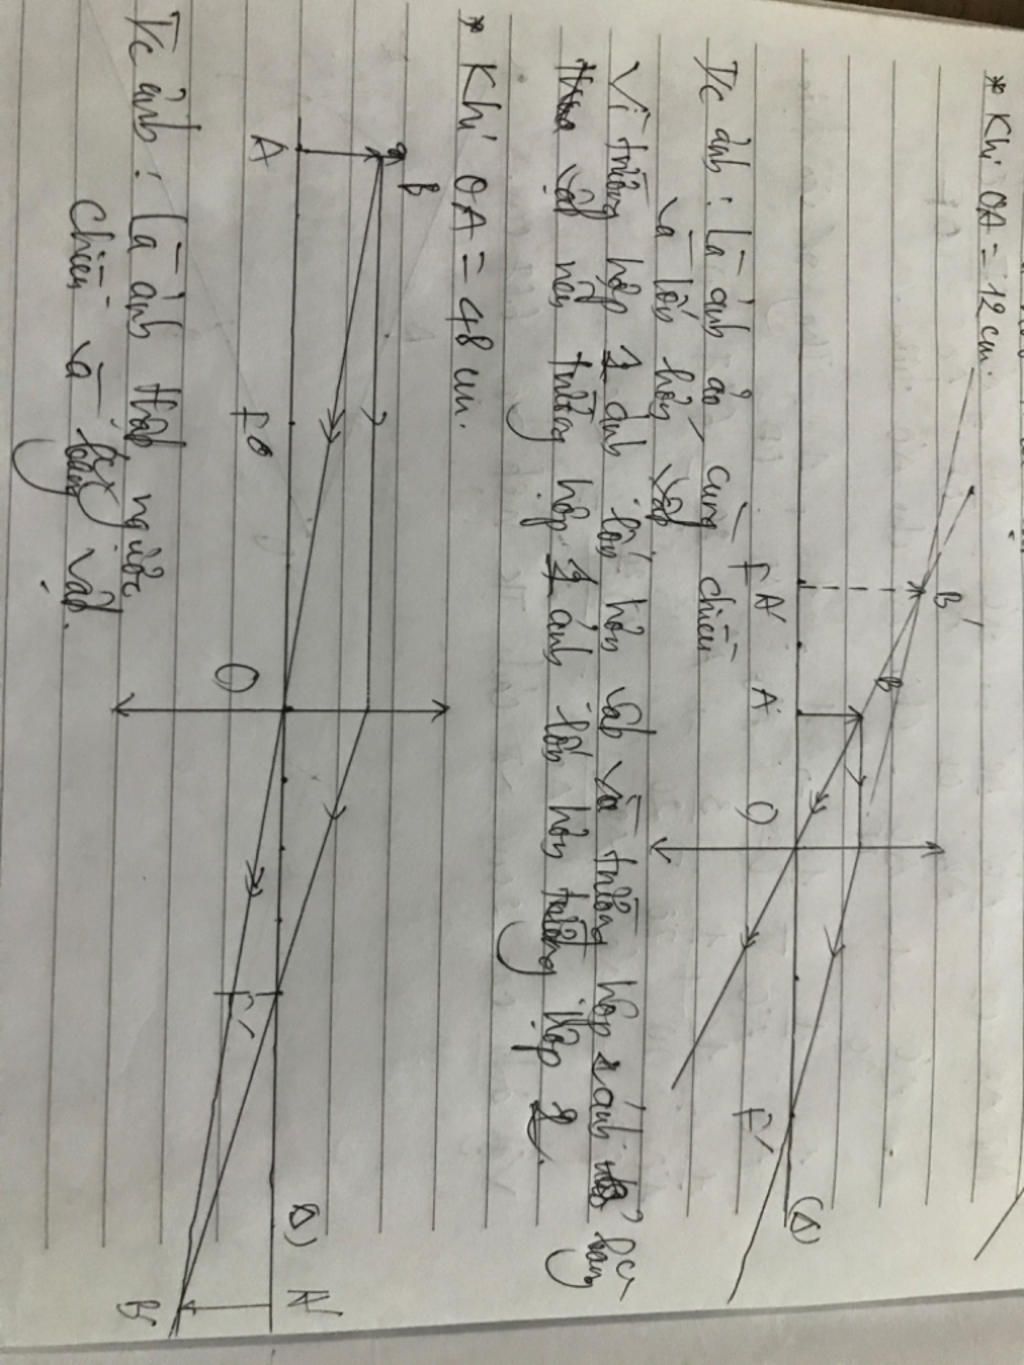 * Khi OA = 12 cm.
B'
B
F A' A O F' (Δ)
T/c ảnh : Là ảnh ảo, cùng chiều
và lớn hơn vật
Vì trường hợp 1 ảnh lớn hơn vật và trường hợp 2 ảnh bằng
vật nên trường hợp 1 ảnh lớn hơn trường hợp 2.
* Khi OA = 48 cm.
B
A F O F' Δ) A'
B'
T/c ảnh : Là ảnh thật ngược
chiều và bằng vật.